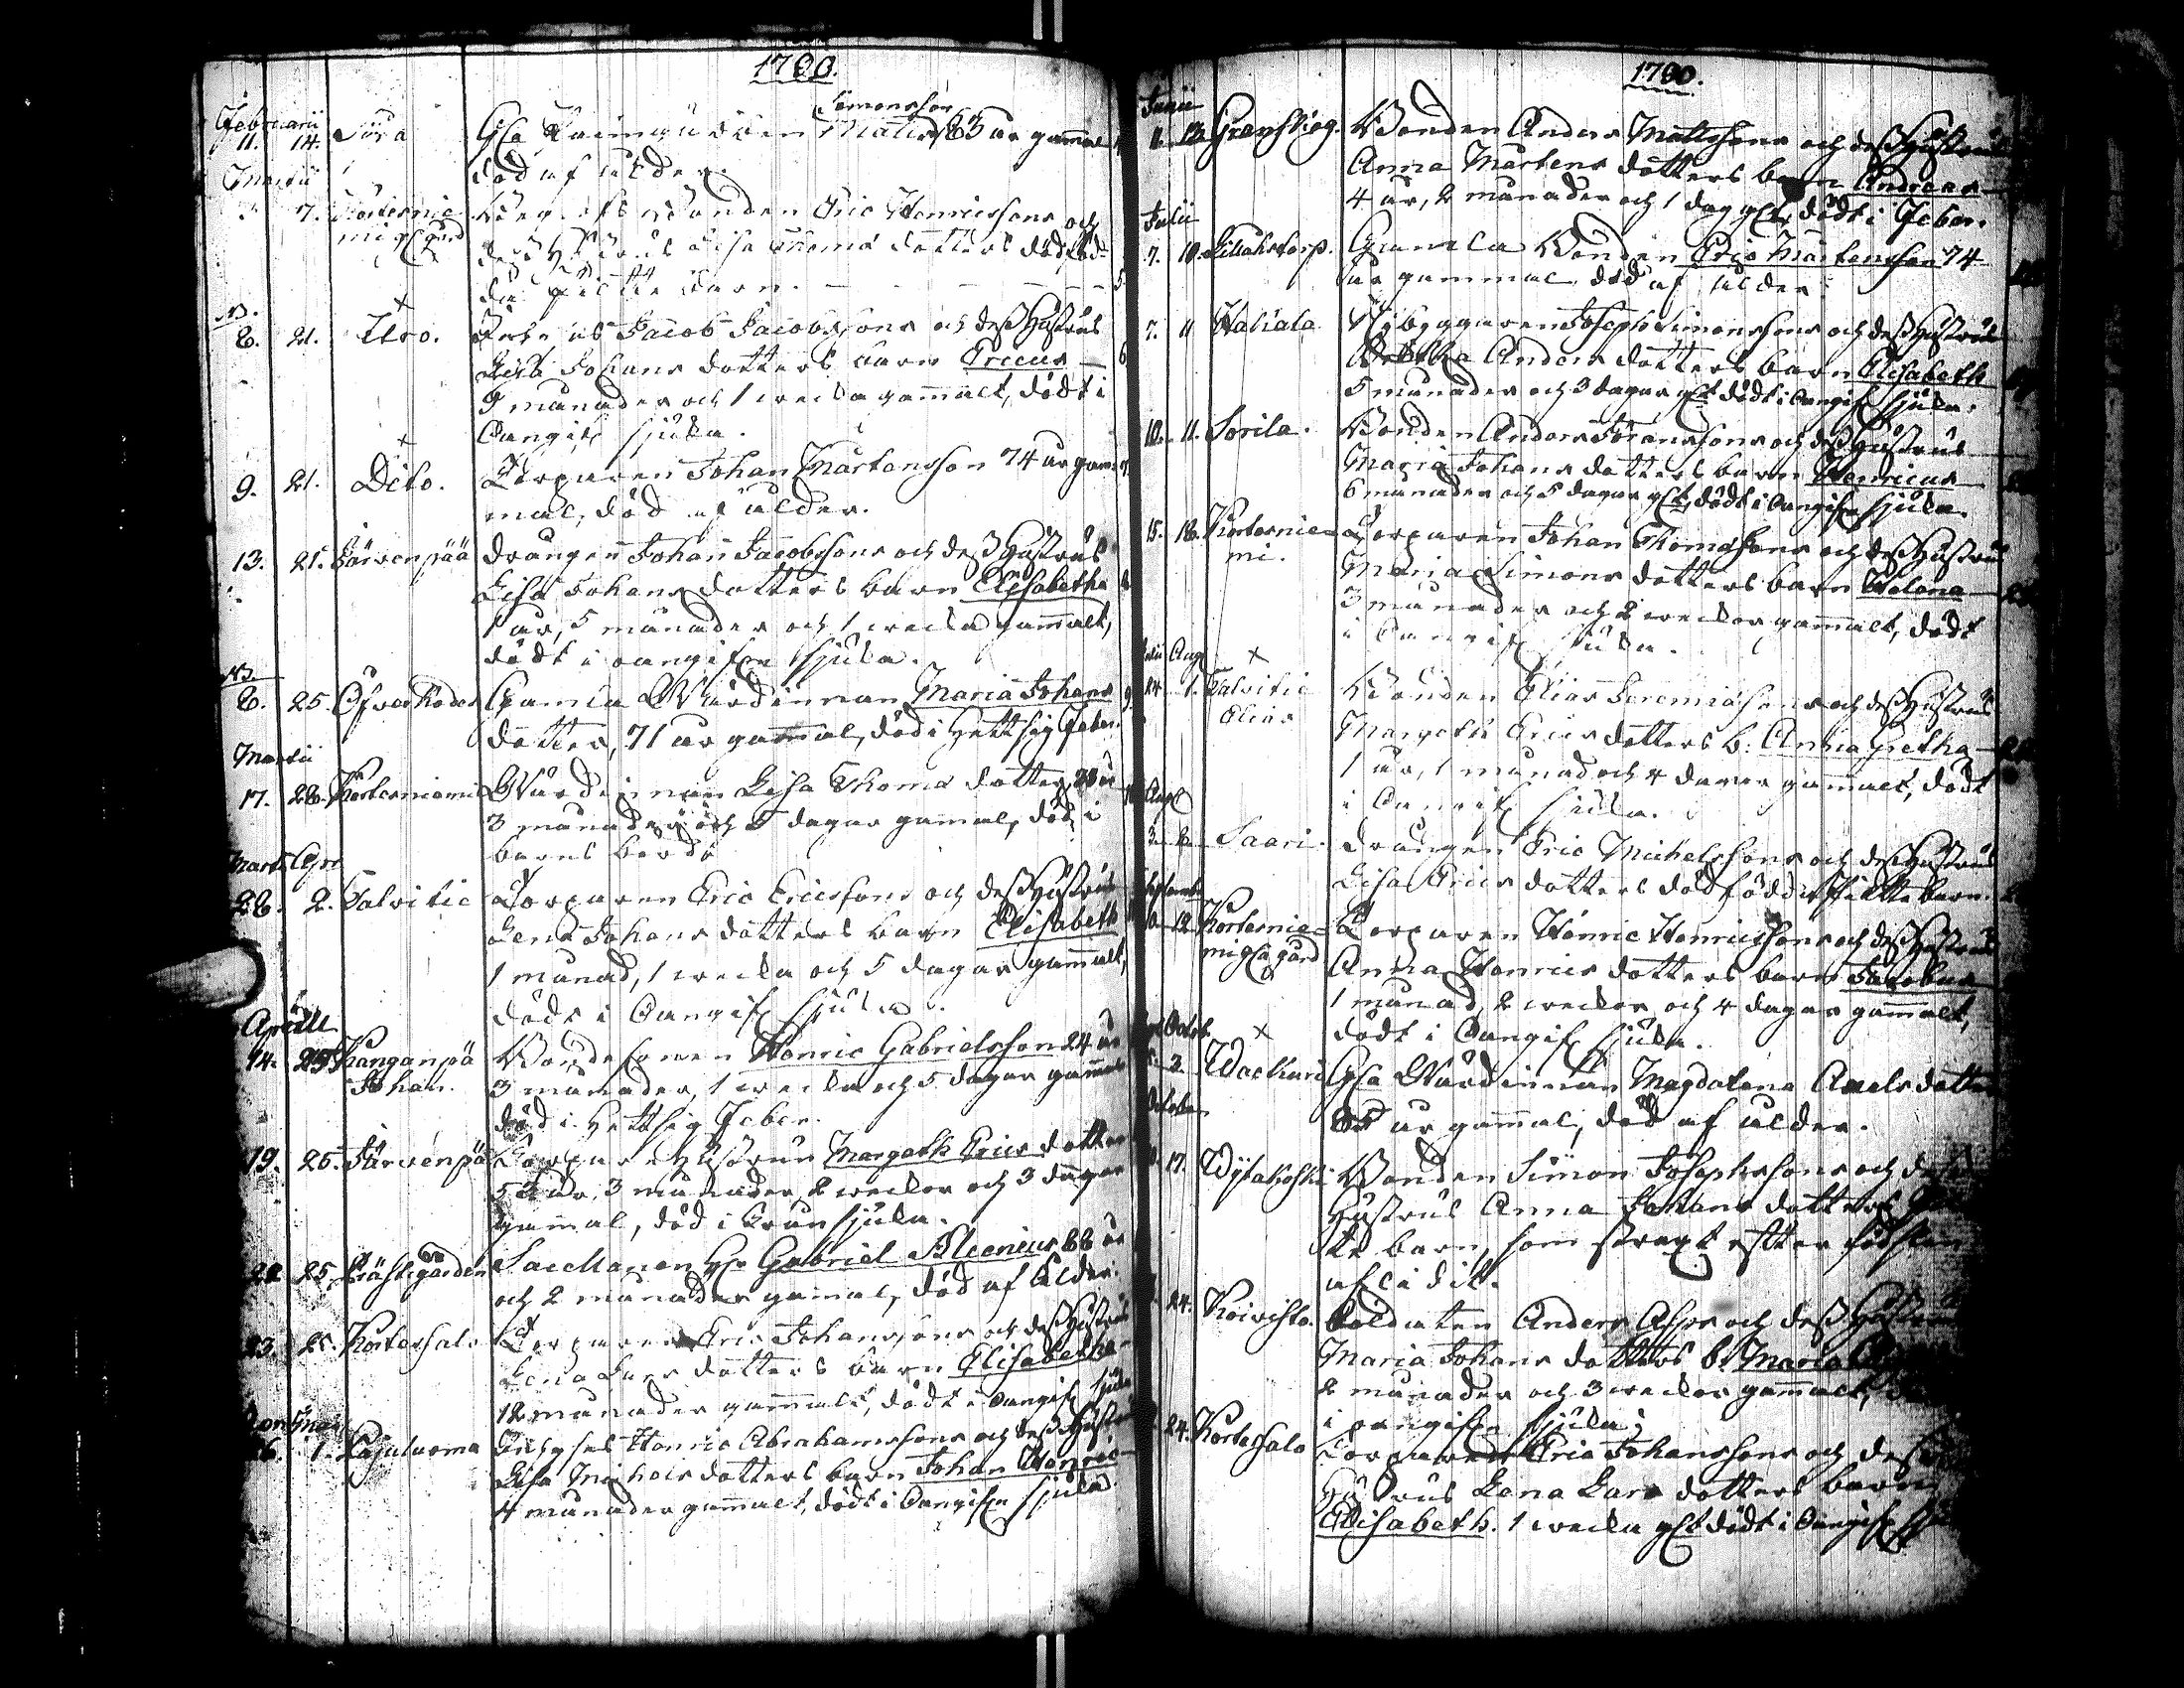 1790.
Februarii Simonsson
11. 14. Sura Gla Matts 83 år gammal
död af ålder.
Martii
7. Kortesnie- Begrofs Bonden Eric Henricssons och
mi gla gård dess Hustrus Lisa Thomæ dotters dödföd-
da barn.
NB.
8. 21. Ilvo. Jacob Jacobssons och dess Hustrus
Lisa Johans dotters barn Ericus
9 månader och 1 wecka gammalt, dödt i
Oangifn sjuka.
9. 21. Dito. Torparen Johan Mårtensson 74 år gam-
mal, död af ålder.
13. 21. Järvenpää Drängen Johan Jacobssons och dess Hustrus
Lisa Johans dotters barn Elisabetha
1 år, 5 månader och 1 wecka gammalt,
dödt i oangifen sjuka.
NB.
8. 25. Gamla Wärdinnan Maria Johans
dotter, 71 år gammal, död i hettsig Feber.
Martii
17. 28. Kortesniemi Wärdinnan Lisa Thomæ dotter, 28 år
3 månader och 5 dagar gamal, död i
barns börd
Marti Apr
28. 2. Talvitie Torparen Eric Ericssons och dess Hustrus
Lena Johans dotters barn Elisabeth
1 månad, 1 wecka och 5 dagar gammalt,
dödt i Oangifn sjuka.
Aprill
14. 25 Kanganpä Bondesonen Henric Gabrielsson 24 år
Johan. 3 månader, 1 wecka och 5 dagar gammal
död i hettsig Feber.
19. 25. Järvenpä Torpare Hustrun Margeth Erics dotter
53 år, 3 månader, 2 weckor och 3 dagar
gammal, död i sjuka.
22 25. Prästgården Gabriel 66 år
och 2 månader gammal, död af Ålder.
23. 25. Kortesalo Torparen Eric Johanssons och dess Hustrus
Lena Lars dotters barn Elisabetha
12 månader gammalt, dödt i Oangifn sjuka
26. 1. Pajuluoma Henric Abrahamssons och dess Hustrus
Lisa Michels dotters barn Johan Henric
4 månader gammalt, dödt i Oangifn sjuka
1790.
Junii
11. 13. Bonden Anders Mattssons och dess Hustrus
Anna Mårtens dotters barn Andreas
4 år, 2 månader och 1 dag glt, dödt i Feber.
Julii
7. 10. Gamla Bonden Eric Mårtensson 74
år gammal död af ålder.
7. 11 Hakala Nybyggaren Joseph Simonssons och dess Hustrus
Anders dotters barn Elisabeth
5 månader och 3 dagar glt dödt i Oangifn sjuka.
10. 11. Sorila. Bonden Anders Göranssons och dess Hustrus
Maria Johans dotters barn Henricus
6 månader och 5 dagar glt, dödt i Oangifn sjuka.
15. 18. Kortesnie- Torparen Johan Thomassons och dess Hustrus
mi. Maria Simons dotters barn Helena
3 månader och 2 weckor gammalt, dödt
i Oangifn sjuka.
Julii Aug
24. 1. Talvitie Bonden Elias Jeremiæsons och dess Hustrus
Elias Margeth Erics dotters b: Anna Gretha
1 år, 1 månad och 4 dagar gammalt, dödt
i Oangifn sjuka.
Aug
3. 8. Saari. Drängen Eric Michelssons och dess Hustrus
Lisa Erics dotters dödfödda barn.
Septembr
10. 12. Kortesnie- Torparen Henric Henricssons och dess Hustrus
mi gla gård Anna Henrics dotters barn Jacobus
1 månad, 2 weckor och 4 dagar gammalt,
dödt i Oangifn sjuka.
Octob
2. Wackuri Gla Wärdinnan Magdalena Axels dotter
85 år gammal, död af ålder.
October
17. Wytakoski Bonden Simon Josephssons och dess
Hustrus Anna Johans dotters
barn, som straxt efter födslen
aflidit.
24. Koivisto. Soldaten Anders Asps och dess Hustrus
Maria Johans dotters b: Maria
2 månader och 3 weckor gammalt,
i oangifen sjuka.
24. Kortesalo Torparen Eric Johanssons och dess
Hustrus Lena Lars dotters barn
Elisabeth. 1 wecka glt dödt i Oangifn